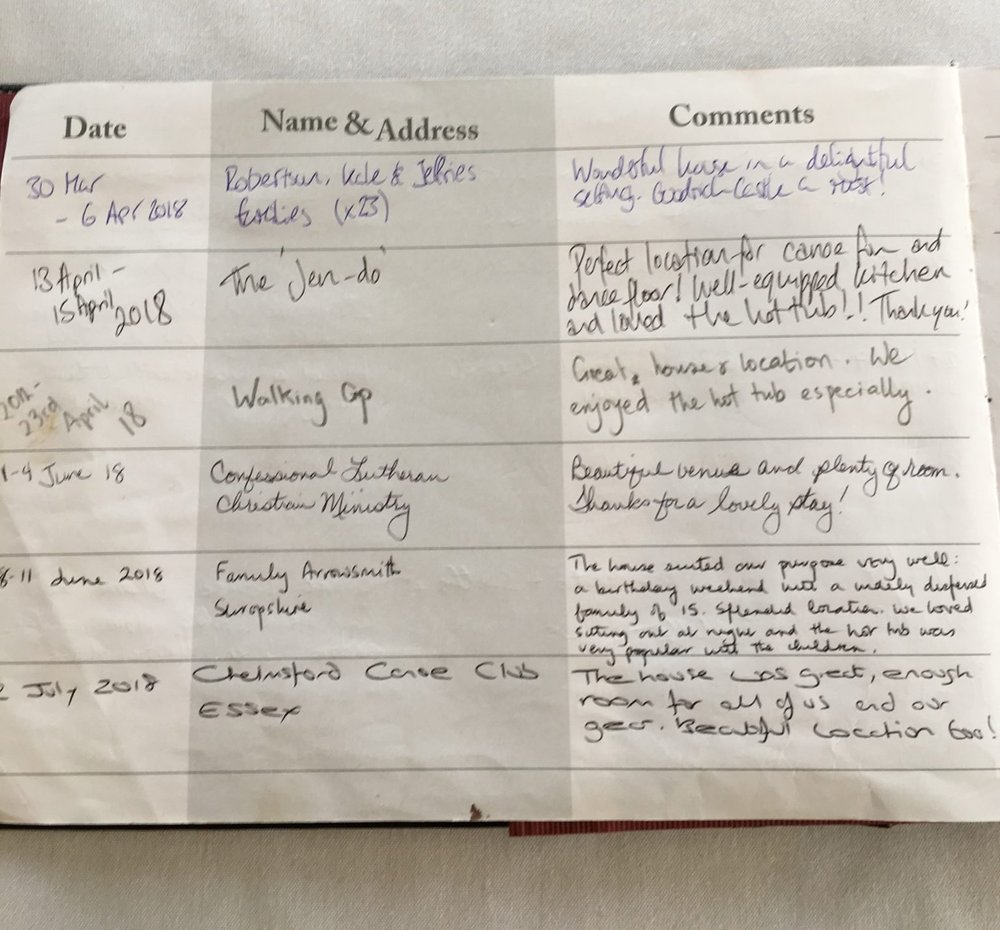 Date Name & Address Comments
30 Mar
- 6 Apr 2018
Robertson, & Jeffries
families (x23)
Wonderful house in a delightful
setting. Goodrich Castle a must!
13 April -
15 April
2018
The 'Jen-do'
Perfect location for canoe fun and
dance floor! Well-equipped kitchen
and loved the hot tub!! Thank you!
23rd April
18
Walking Gp
Great house & location. We
enjoyed the hot tub especially.
1-4 June 18
Confessional Lutheran
Christian Ministry
Beautiful venue and plenty of room.
Thanks for a lovely stay!
8-11 June 2018
Family Arrowsmith
Shropshire
The house suited our purpose very well:
a birthday weekend with a widely dispersed
family of 15. Splendid location. We loved
sitting out at night and the hot tub was
very popular with the children.
July 2018
Chelmsford Canoe Club
Essex
The house was great, enough
room for all of us and our
gear. Beautiful Location too!